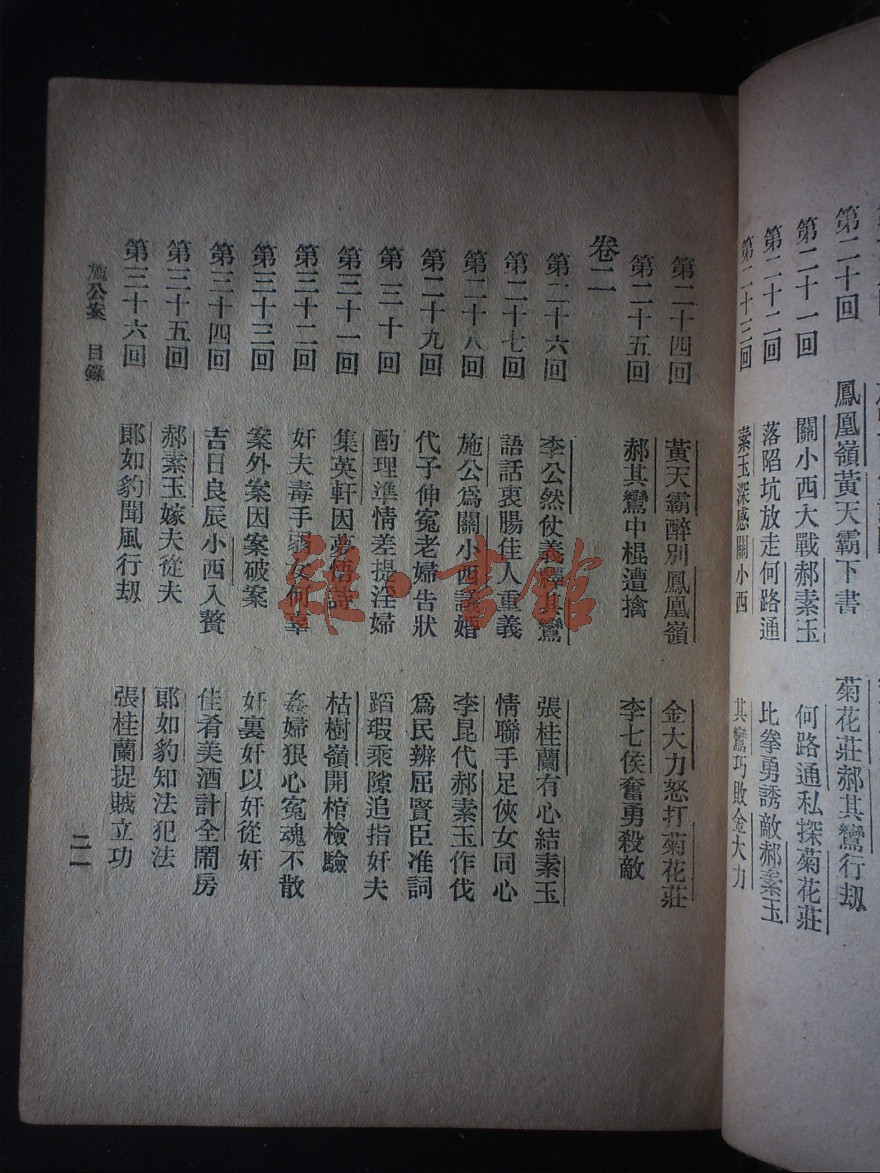 第二十回 鳳凰嶺黃天霸下書 菊花莊郝其鸞行刼
第二十一回 關小西大戰郝素玉 何路通私探菊花莊
第二十二回 落陷坑放走何路通 比拳勇誘敵郝素玉
第二十三回 素玉深感關小西 其鸞巧敗金大力
第二十四回 黃天霸醉別鳳凰嶺 金大力怒打菊花莊
第二十五回 郝其鸞中棍遭擒 李七侯奮勇殺敵
卷二
第二十六回 李公然仗義釋其鸞 張桂蘭有心結素玉
第二十七回 語話衷腸佳人重義 情聯手足俠女同心
第二十八回 施公爲關小西議婚 李昆代郝素玉作伐
第二十九回 代子伸冤老婦告狀 爲民辨屈賢臣准詞
第三十回 酌理準情差提淫婦 蹈瑕乘隙追指奸夫
第三十一回 集英軒因夢悟詩 枯樹嶺開棺檢驗
第三十二回 奸夫毒手弱女何辜 姦婦狠心冤魂不散
第三十三回 案外案因案破案 奸裏奸以奸從奸
第三十四回 吉日良辰小西入贅 佳肴美酒計全鬧房
第三十五回 郝素玉嫁夫從夫 郞如豹知法犯法
第三十六回 郞如豹聞風行刼 張桂蘭捉賊立功
施公案 目錄
二
雜·書館